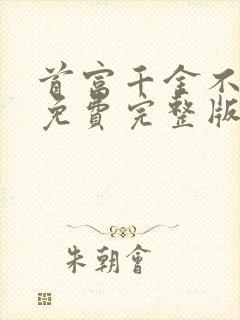 首富千金不
免費完整版
朱朝會